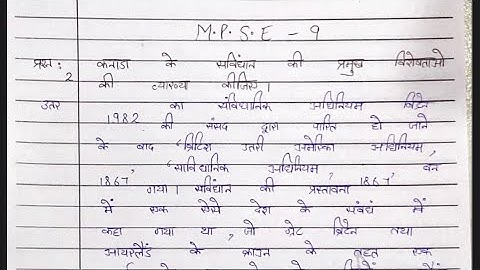 M.P.S.E - 9
प्रश्न: कनाडा के संविधान की प्रमुख विशेषताओ
2 की व्याख्या कीजिए।
उतर का संविधानिक अधिनियम ब्रिटेन
1982 की संसद द्वारा पारित हो जाने
के बाद 'ब्रिटिश उतरी अमेरिका अधिनियम',
'संविधानिक अधिनियम, बन
1867' गया। संविधान की प्रस्तावना 1867'
में एक ऐसे देश के संबंध में
कहा गया था, जो ग्रेट ब्रिटेन तथा
आयरलैंड के क्राउन के तहत एक